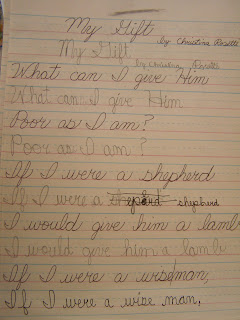 My Gift
by Christina Rosetti
My Gift
by Christina Rosetti
What can I give Him
What can I give Him
Poor as I am?
Poor as I am?
If I were a shepherd
If I were a shepherd
I would give him a lamb
I would give him a lamb
If I were a wiseman,
If I were a wise man,